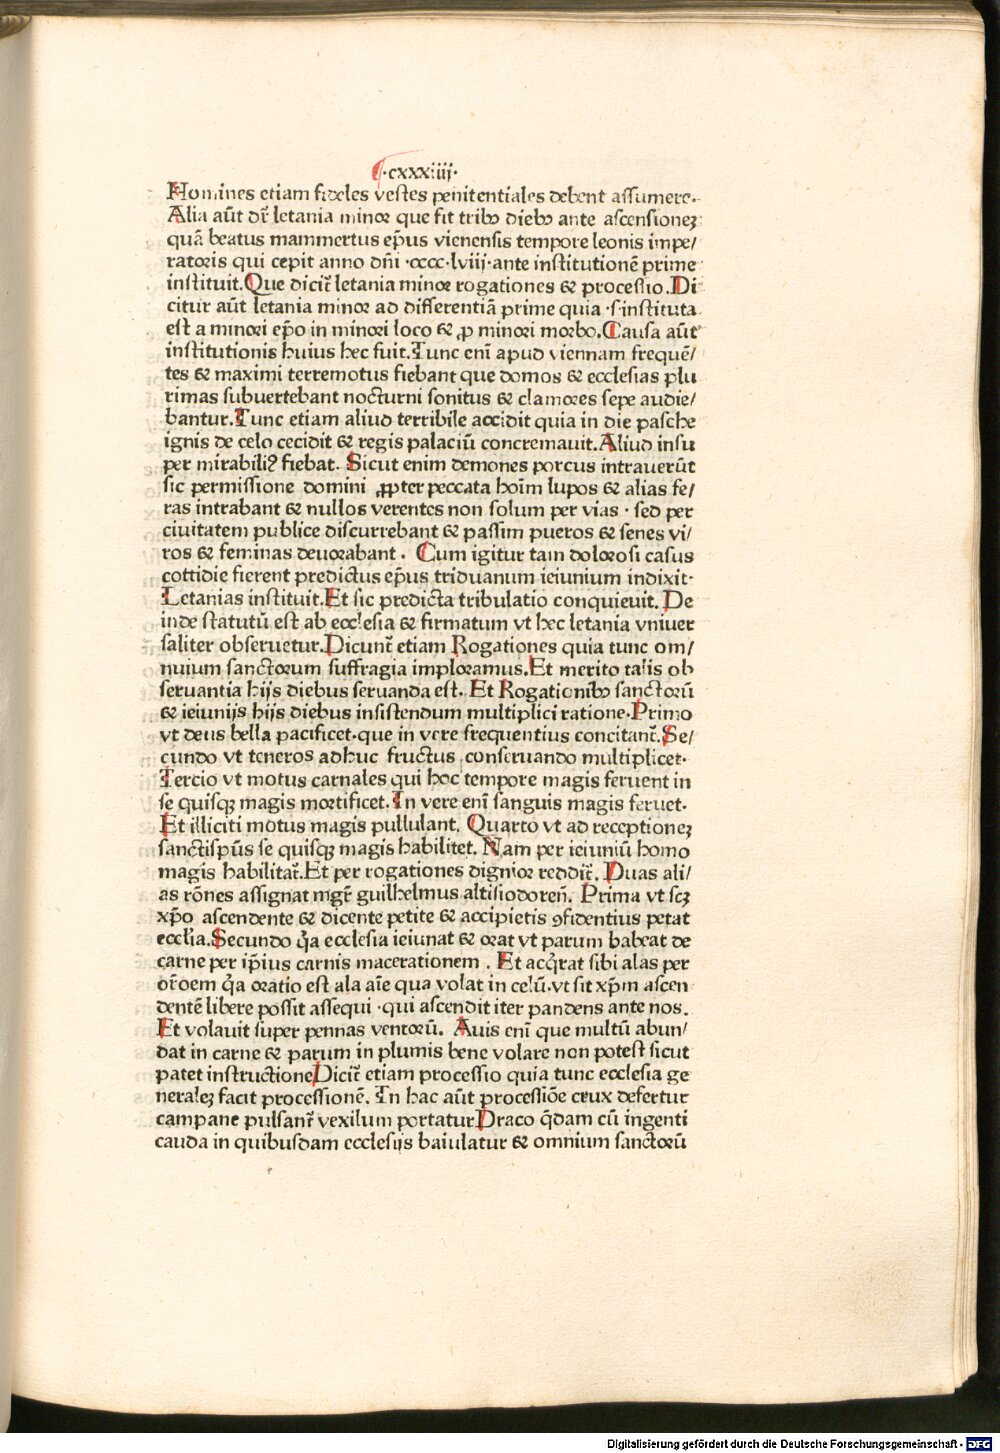 ·cxxxiiij·
Homines etiam fideles vestes penitentiales debent assumere.
Alia aūt dr̄ letania minor que fit tribꝰ diebꝰ ante ascensioneꝫ
quā beatus mammertus ep̄us vienensis tempore leonis impe/
ratoris qui cepit anno dn̄i ·cccc·lviij·ante institutionē prime
instituit.Que dicit̄ letania minor rogationes & processio.Di
citur aūt letania minor ad differentiā prime quia ·s·instituta
est a minori ep̄o in minori loco & ꝓ minori morbo.Causa aūt
institutionis huius hec fuit.Tunc eni apud viennam frequē/
tes & maximi terremotus fiebant que domos & ecclesias plu
rimas subuertebant nocturni sonitus & clamores sepe audie/
bantur.Tunc etiam aliud terribile accidit quia in die pasche
ignis de celo cecidit & regis palaciū concremauit.Aliud insu
per mirabiliꝰ fiebat. Sicut enim demones porcus intrauerūt
sic permissione domini ꝓpter peccata hoīm lupos & alias fe/
ras intrabant & nullos verentes non solum per vias · sed per
ciuitatem publice discurrebant & passim pueros & senes vi/
ros & feminas deuorabant . Cum igitur tam dolorosi casus
cottidie fierent predictus ep̄us triduanum ieiunium indixit·
Letanias instituit.Et sic predicta tribulatio conquieuit. De
inde statutū est ab ecclesia & firmatum vt hec letania vniuer
saliter obseruetur.Dicunt̄ etiam Rogationes quia tunc om/
nuium sanctorum suffragia imploramus.Et merito talis ob
seruantia hijs diebus seruanda est. Et Rogationibꝰ sanctorū
& ieiunijs hijs diebus insistendum multiplici ratione·Primo
vt deus bella pacificet·que in vere frequentius concitant̄.Se/
cundo vt teneros adhuc fructus conseruando multiplicet·
Tercio vt motus carnales qui hoc tempore magis feruent in
se quisqꝫ magis mortificet.In vere eni sanguis magis feruet·
Et illiciti motus magis pullulant. Quarto vt ad receptioneꝫ
sanctispūs se quisqꝫ magis habilitet. Nam per ieiuniū homo
magis habilitat̄.Et per rogationes dignior reddit̄. Duas ali/
as rōnes assignat mgr̄ guilhelmus altisiodoreñ. Prima vt scꝫ
xp̄o ascendente & dicente petite & accipietis ꝯfidentius petat
ecclīa.Secundo q̄a ecclesia ieiunat & orat vt parum habeat de
carne per ip̄ius carnis macerationem . Et acq̄rat sibi alas per
or̄oem q̄a oratio est ala aīe qua volat in celū.vt sit xp̄m ascen
dentē libere possit assequi ·qui ascendit iter pandens ante nos.
Et volauit super pennas ventorū. Auis eni que multū abun/
dat in carne & parum in plumis bene volare non potest sicut
patet instructione Dicit̄ etiam processio quia tunc ecclesia ge
neraleꝫ facit processionē. In hac aūt processiōe crux defertur
campane pulsant̄ vexilum portatur Draco q̄dam cū ingenti
cauda in quibusdam ecclesijs baiulatur & omnium sanctorū
Digitalisierung gefördert durch die Deutsche Forschungsgemeinschaft - DFG